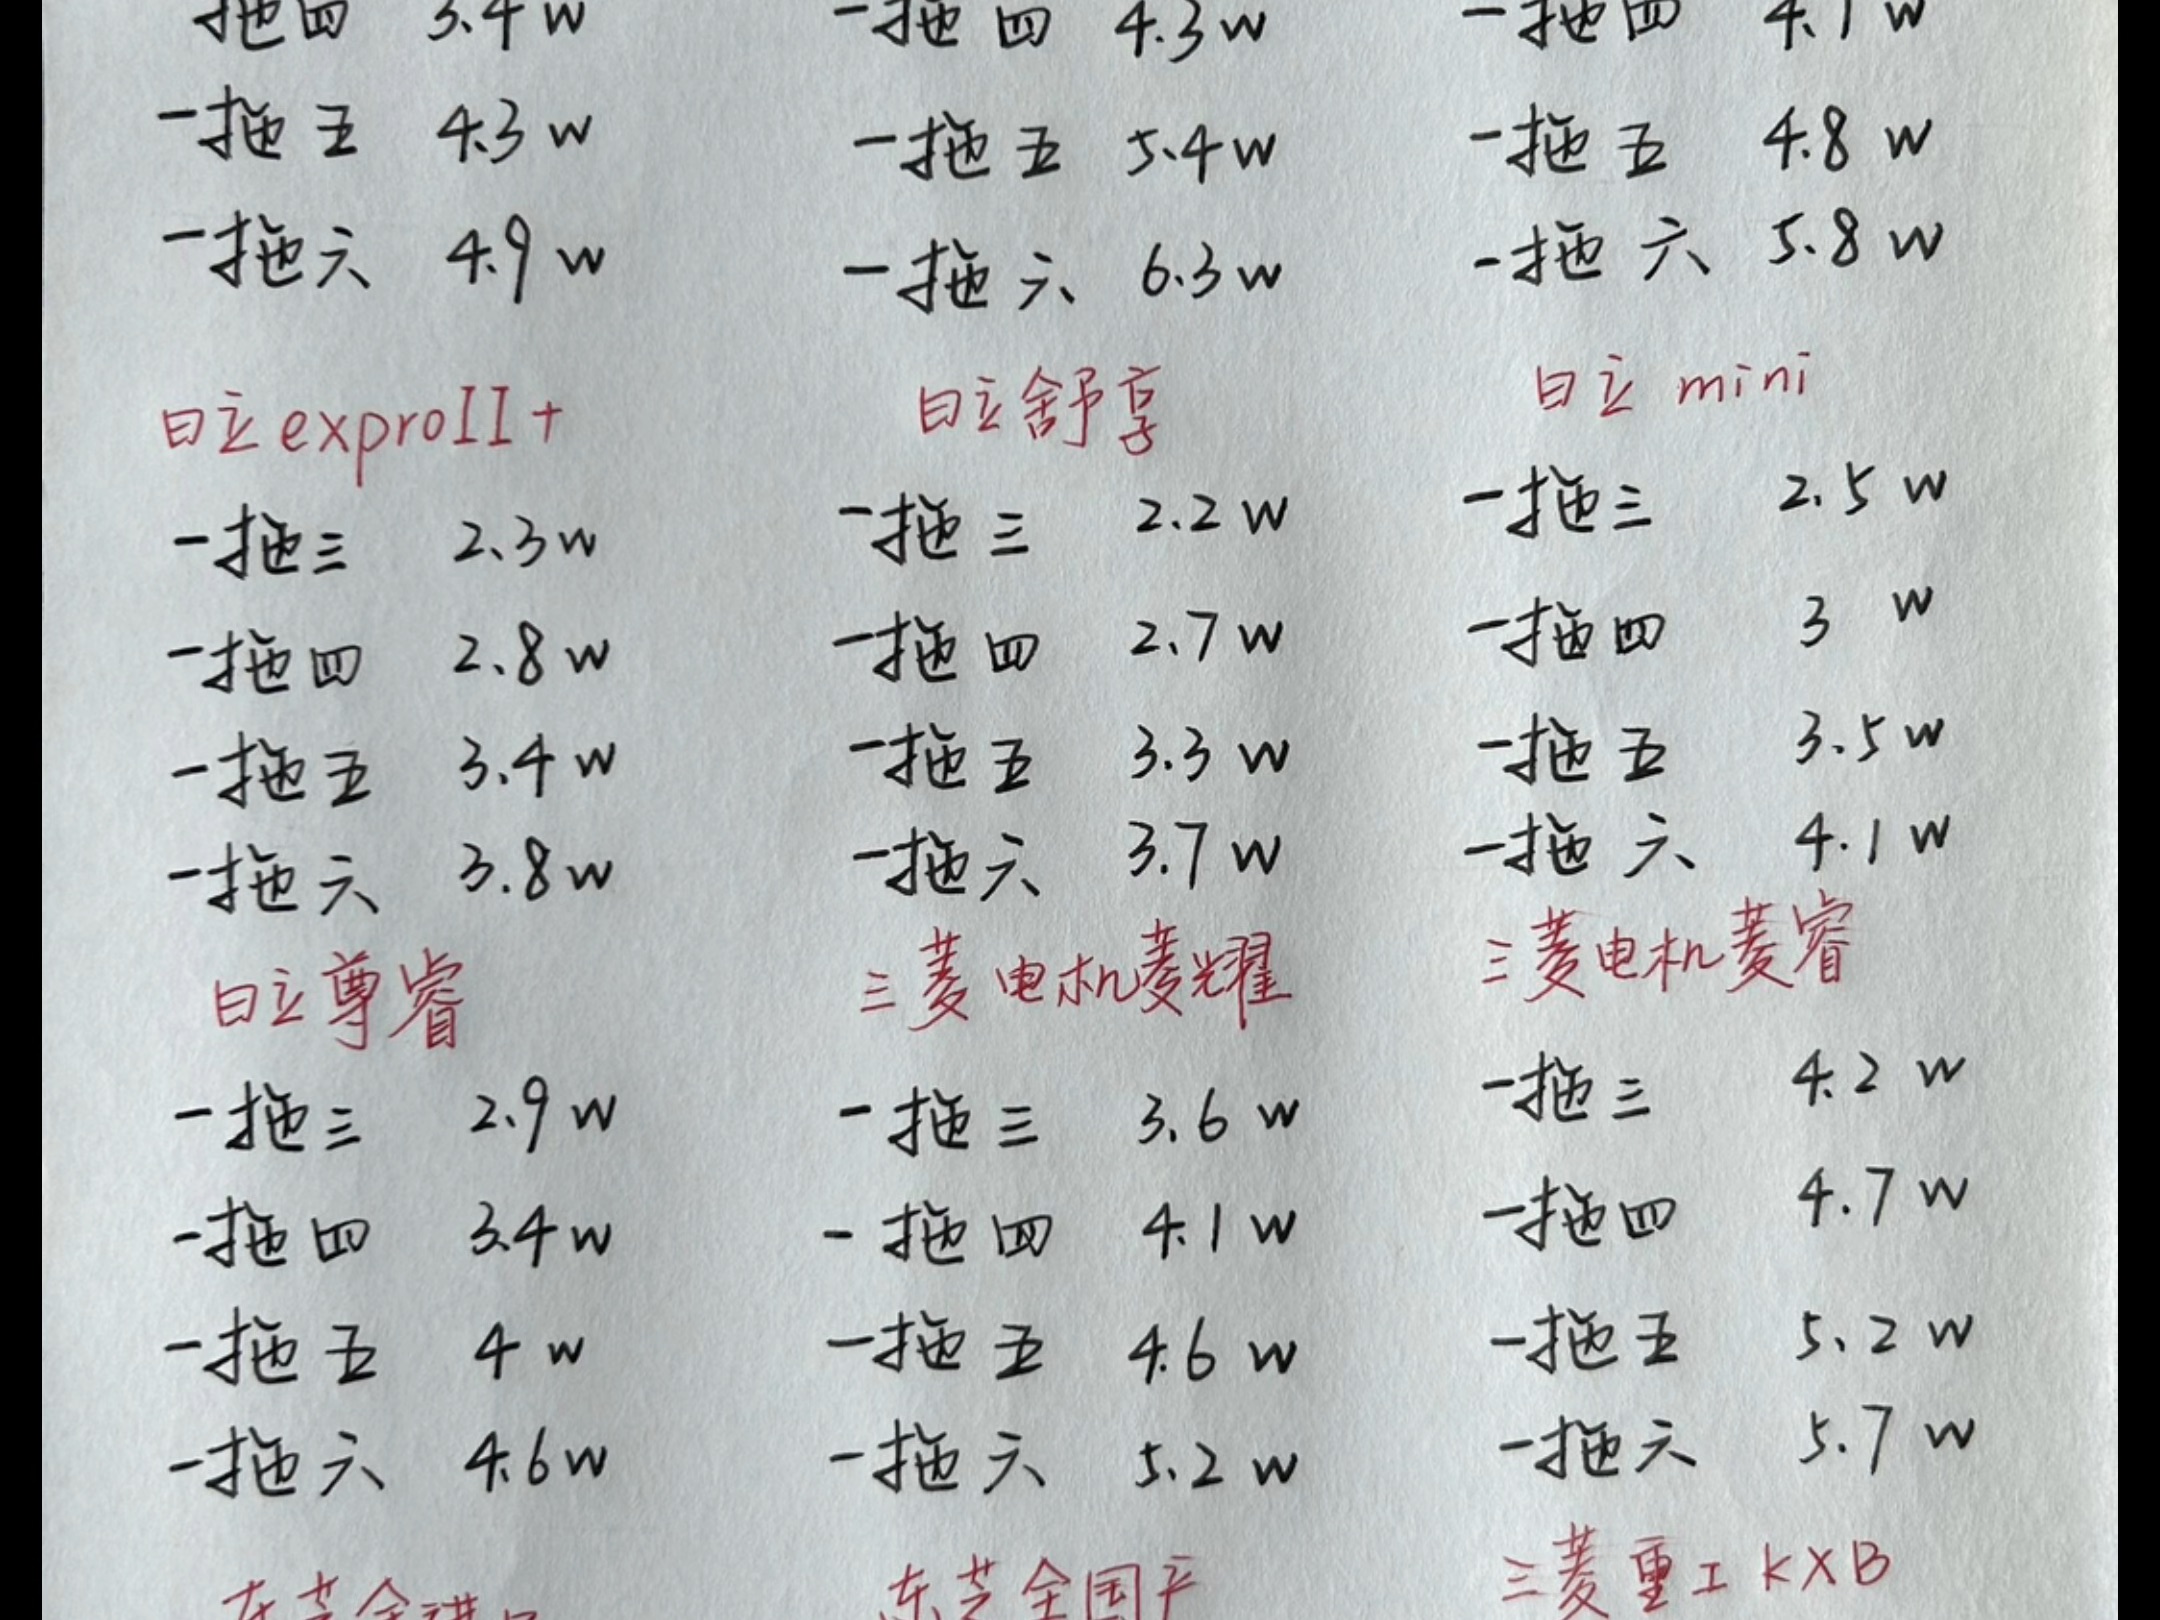 一拖四 3.4w
一拖五 4.3w
一拖六 4.9w
日立exproII+
一拖三 2.3w
一拖四 2.8w
一拖五 3.4w
一拖六 3.8w
日立尊睿
一拖三 2.9w
一拖四 3.4w
一拖五 4w
一拖六 4.6w
东芝全进口
一拖四 4.3w
一拖五 5.4w
一拖六 6.3w
日立舒享
一拖三 2.2w
一拖四 2.7w
一拖五 3.3w
一拖六 3.7w
三菱电机菱耀
一拖三 3.6w
一拖四 4.1w
一拖五 4.6w
一拖六 5.2w
东芝全国产
一拖四 4.1w
一拖五 4.8w
一拖六 5.8w
日立mini
一拖三 2.5w
一拖四 3w
一拖五 3.5w
一拖六 4.1w
三菱电机菱睿
一拖三 4.2w
一拖四 4.7w
一拖五 5.2w
一拖六 5.7w
三菱重工KXB